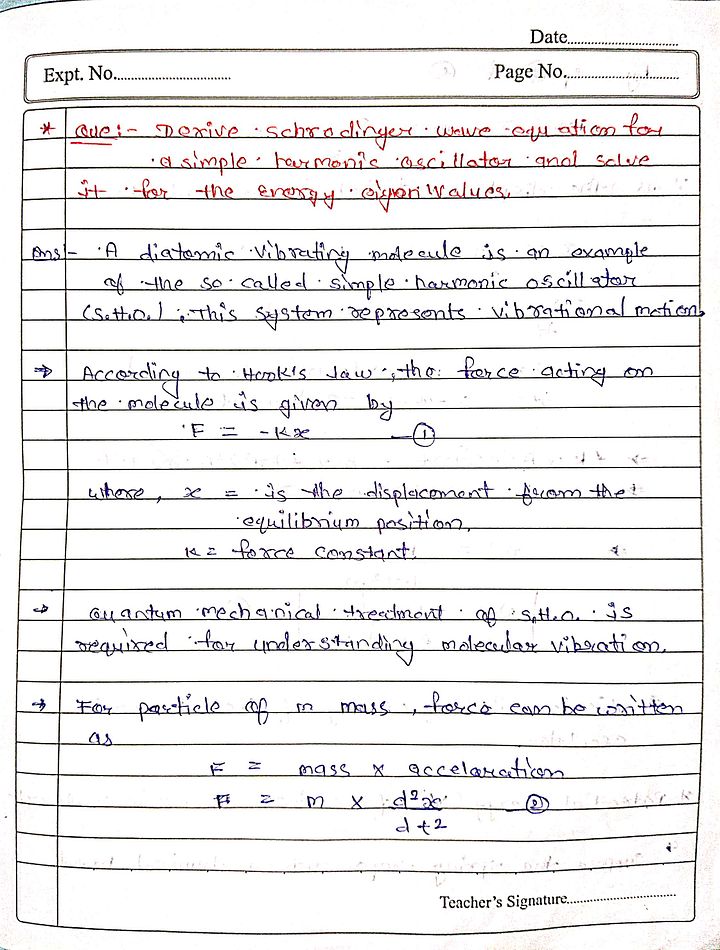 Date
Expt. No.
Page No.
* Que:- Derive schrodinger wave equation for
a simple harmonic oscillator and solve
it for the energy eigen values.
Ans - A diatomic vibrating molecule is an example
of the so called simple harmonic oscillator
(S.H.O.), This system represents vibrational motion.
⇒ According to Hook's law, the force acting on
the molecule is given by
F = -Kx —①
where, x = is the displacement from the
equilibrium position.
K = force constant.
→ Quantum mechanical treatment of S.H.O. is
required for understanding molecular vibration.
→ For particle of m mass, force can be written
as
F = mass × acceleration
F = m × d²x/dt2 —②
Teacher's Signature